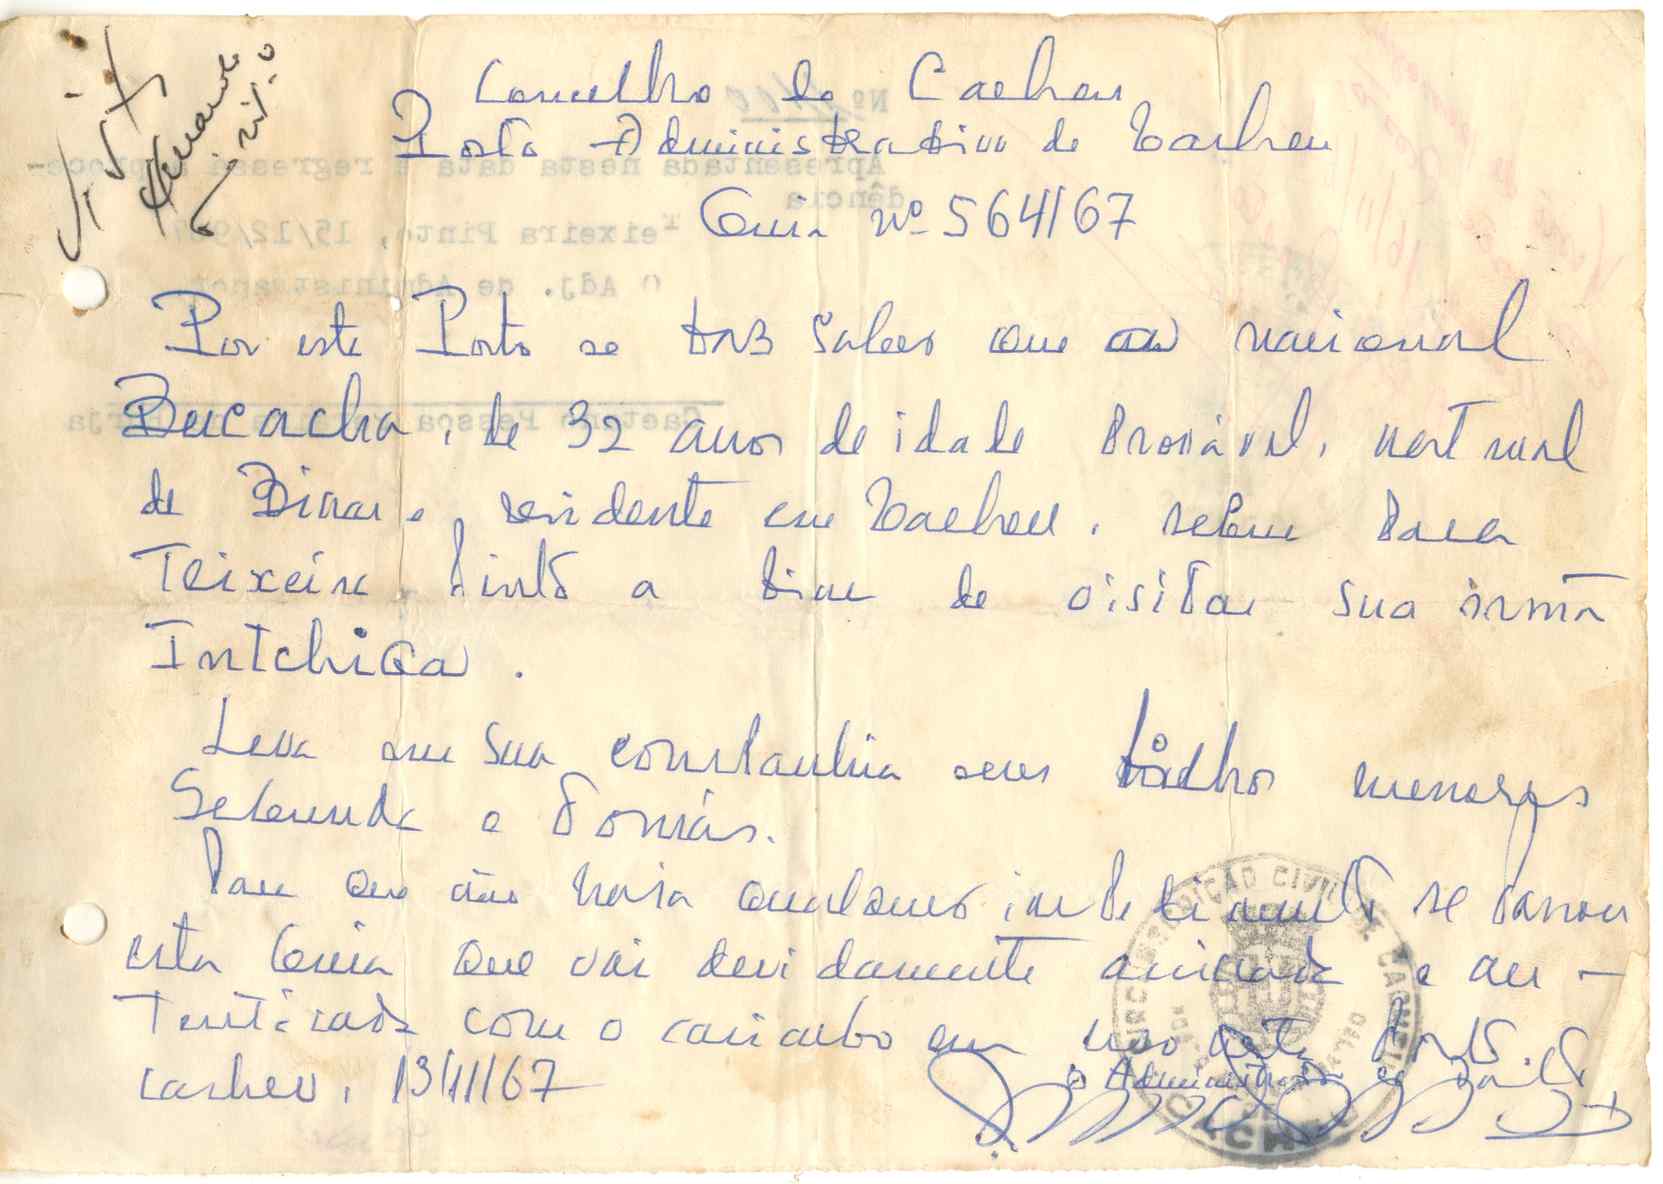 Concelho de Cacheu
Posto Administrativo de Cacheu
Guia nº 564/67
Por este Posto se faz saber que a nacional
Bucacha, de 32 anos de idade provável, natural
de Binar e residente em Cacheu, segue para
Teixeira Pinto a fim de visitar sua irmã
Intchiga.
Leva em sua companhia seus filhos menores
Segunda e Tomás.
Para que não haja qualquer impedimento se passou
esta Guia que vai devidamente assinada e au-
tenticada com o carimbo em uso neste Posto.
Cacheu, 13/11/67
o Administrador do Posto
CIRCUNSCRIÇÃO CIVIL DE CACHEU
Nº
Apresentada nesta data e regressa à proce-
dência
Teixeira Pinto, 15/12/967
O Adj. de Administrador
Caetano Pessoa